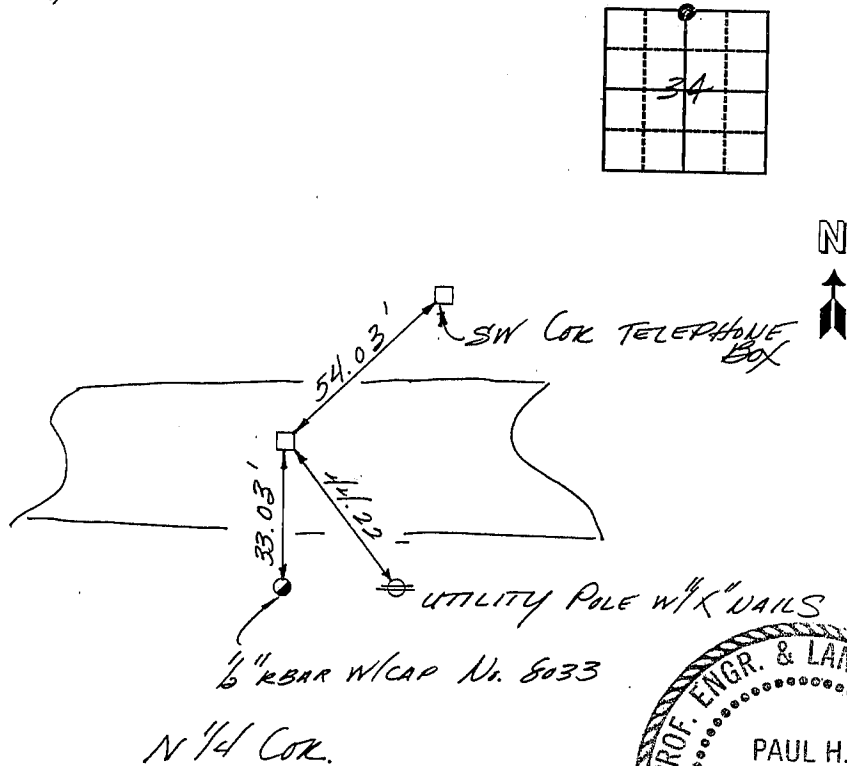 34
N
54.03'
SW COR TELEPHONE
BOX
33.03'
UTILITY POLE W/"X" NAILS
REBAR W/CAP No. 8033
N 1/4 COR.
PROF. ENGR. & LAN
PAUL H.